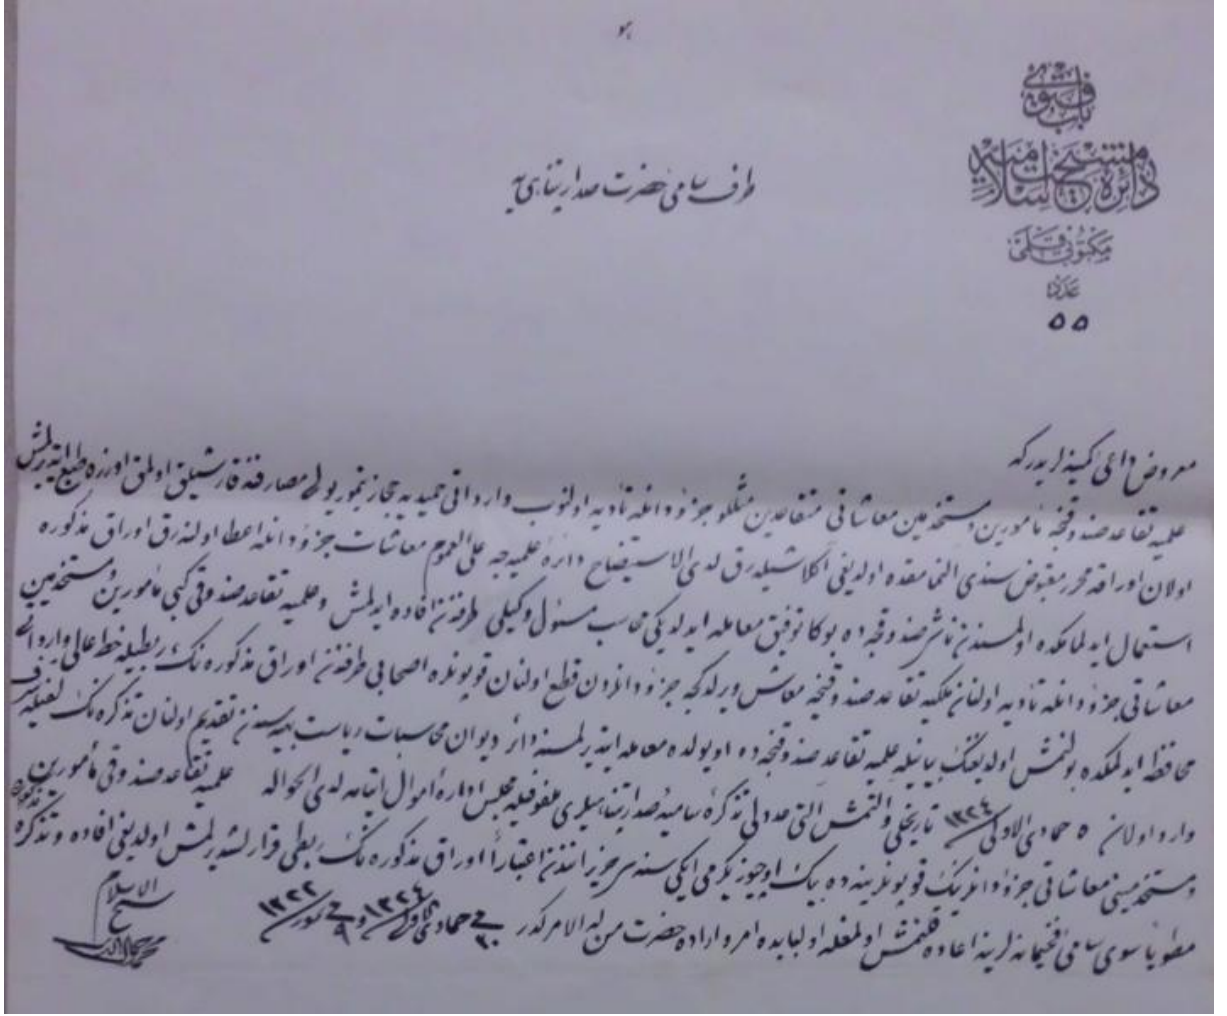 هو
باب فتوى
دائره مشيخت اسلاميه
مكتوبى قلمى
عدد
٥٥
طرف سامىء حضرت صدارتپناهى يه
معروض داعىء كمينه لريدركه
علميه تقاعد صندوقنجه مأمورين و مستخدمين معاشاتى متقاعدين مثللو جزؤدانله تأديه اولنوب وارداتى حميديه حجاز تيمور يولى مصارفنه قارشيلق اولمق اوزره طبع ايتديرلمش
اولان اوراقه محرر مقبوض سندى النمامقده اولديغى اكلاشيله رق لدى الاستيضاح دائرهء علميه جه على العموم معاشات جزؤدانله اعطا اولنه رق اوراق مذكوره
استعمال ايدلمامكده اولمسندن ناشى صندوقجه ده بوكا توفيق معامله ايدلديكى محاسب مسئول وكيلى طرفندن افاده ايدلمش و علميه تقاعد صندوقى كبى مأمورين و مستخدمين
معاشاتى جزؤدانله تأديه اولنان ملكيه تقاعد صندوقنجه معاش ويرلدكجه جزؤدانردن قطع اولنان قوپونلره اصحابى طرفندن اوراق مذكوره نك ربطيله خط عالى وارداتى
محافظه ايدلمكده بولنمش اولديغنك بيانيله علميه تقاعد صندوقنجه ده او يولده معامله ايتديرلمسنه دائر ديوان محاسبات رياست بهيه سندن تقديم اولنان تذكره نك لفيله شرف
وارد اولان ٥ جمادى الاولى ١٣٢٤ تاريخلى و التمش التى عددلى تذكرهء ساميهء صدارتپناهيلرى ملفوفيله مجلس ادارهء اموال ايتامه لدى الحواله علميه تقاعد صندوقى مأمورين
و مستخدمينى معاشاتى جزؤدانلرينك قوپونلرينه ده بيك اوچيوز يكرمى ايكى سنه سى حزيرانندن اعتباراً اوراق مذكوره نك ربطى قرارلشديرلمش اولديغى افاده و تذكرهء مذكوره
مطوياً سوى سامىء فخيمانه لرينه اعاده قلنمش اولمغله اولبابده امر و اراده حضرت من له الامركدر فى ٢٠ جمادى الاولى ١٣٢٤ و فى ٩ تموز ١٣٢٢
شيخ الاسلام